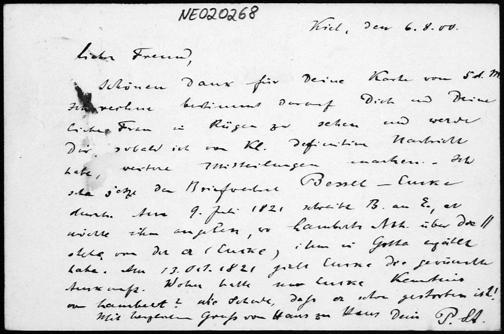 NE020268
Kiel, den 6.8.00.
Lieber Freund,
Schönen Dank für Deine Karte vom 5 d. M.
Ich rechne bestimmt darauf Dich und Deine
liebe Frau in Rügen zu sehen und werde
Dir, sobald ich von Kl. definitive Nachricht
habe, weitere Mittheilungen machen. Ich
sehe jetzt den Briefwechsel Bessel – Encke
durch. Am 9. Juli 1821 schreibt B. an E., er
möchte ihm angeben, wo Lamberts Abh. über
, von der er (Encke) ihm in Gotha erzählt
habe. Am 13. Oct. 1821 giebt Encke die gewünschte
Auskunft. Woher hatte nun Encke Kenntniss
von Lambert? Wie Schade, dass er schon gestorben ist!
Mit herzlichem Gruss von Haus zu Haus Dein P. St.